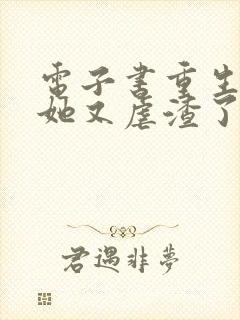 電子書重生
她又虐渣了
君遇非夢